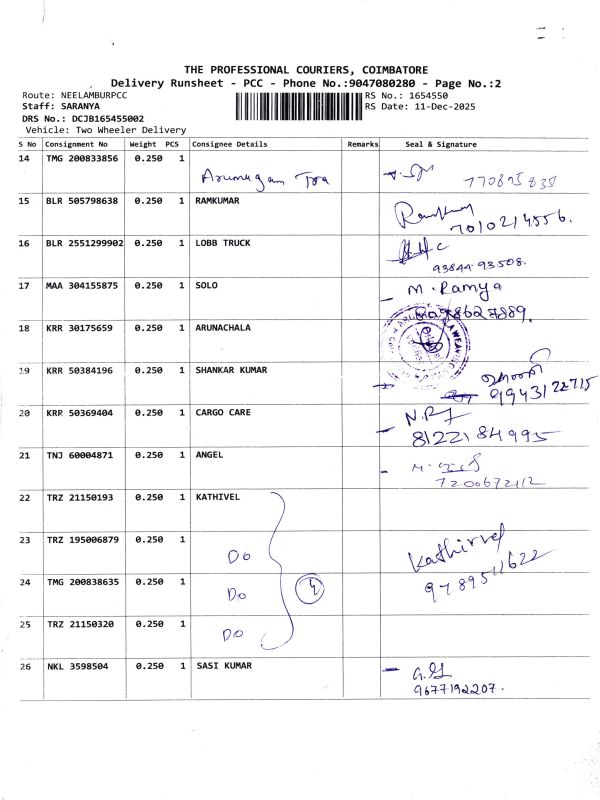 THE PROFESSIONAL COURIERS, COIMBATORE
Delivery Runsheet - PCC - Phone No.:9047080280 - Page No.:2
Route: NEELAMBURPCC RS No.: 1654550
Staff: SARANYA RS Date: 11-Dec-2025
DRS No.: DCJB165455002
Vehicle: Two Wheeler Delivery
S No Consignment No Weight PCS Consignee Details Remarks Seal & Signature
14 TMG 200833856 0.250 1 Arumugam
15 BLR 505798638 0.250 1 RAMKUMAR Ramkumar
7010214556.
16 BLR 2551299902 0.250 1 LOBB TRUCK
93844 93508.
17 MAA 304155875 0.250 1 SOLO M. Ramya
18 KRR 30175659 0.250 1 ARUNACHALA
19 KRR 50384196 0.250 1 SHANKAR KUMAR
9943122715
20 KRR 50369404 0.250 1 CARGO CARE
8122184995
21 TNJ 60004871 0.250 1 ANGEL
7200672112
22 TRZ 21150193 0.250 1 KATHIVEL
23 TRZ 195006879 0.250 1 Do Kathirvel
24 TMG 200838635 0.250 1 Do 4 9789511622
25 TRZ 21150320 0.250 1 Do
26 NKL 3598504 0.250 1 SASI KUMAR
9677192207.